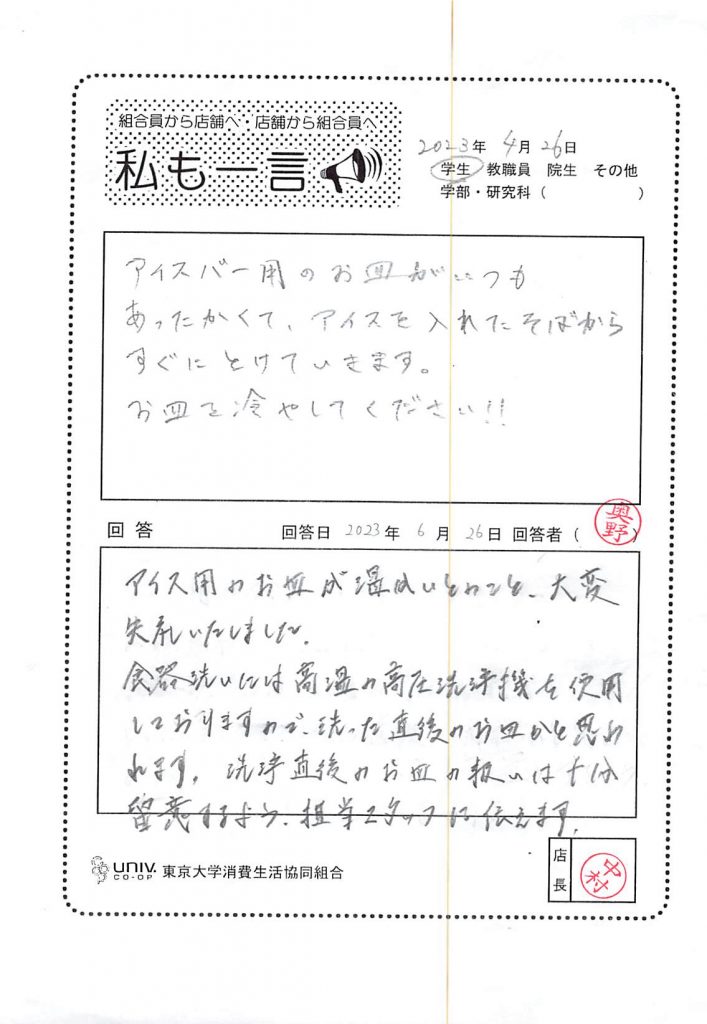 組合員から店舗へ・店舗から組合員へ
私も一言
2023年 4月 26日
学生 教職員 院生 その他
学部・研究科( )
アイスバー用のお皿がいつも
あったかくて、アイスを入れたそばから
すぐにとけていきます。
お皿を冷やしてください!!
回答 回答日 2023年 6月 26日 回答者( 奥野 )
アイス用のお皿が温かいとのこと、大変
失礼いたしました。
食器洗いには高温の高圧洗浄機を使用
しておりますので、洗った直後のお皿かと思わ
れます。洗浄直後のお皿の扱いは十分
留意するよう、担当スタッフに伝えます。
UNIV. CO-OP 東京大学消費生活協同組合
店長 中村